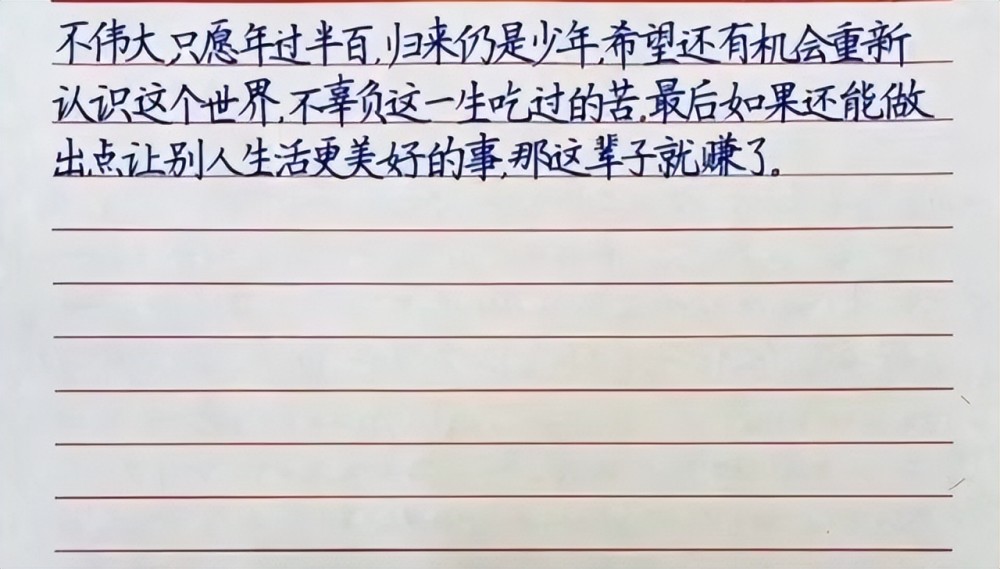 不伟大,只愿年过半百,归来仍是少年,希望还有机会重新
认识这个世界,不辜负这一生吃过的苦,最后如果还能做
出点让别人生活更美好的事,那这辈子就赚了。